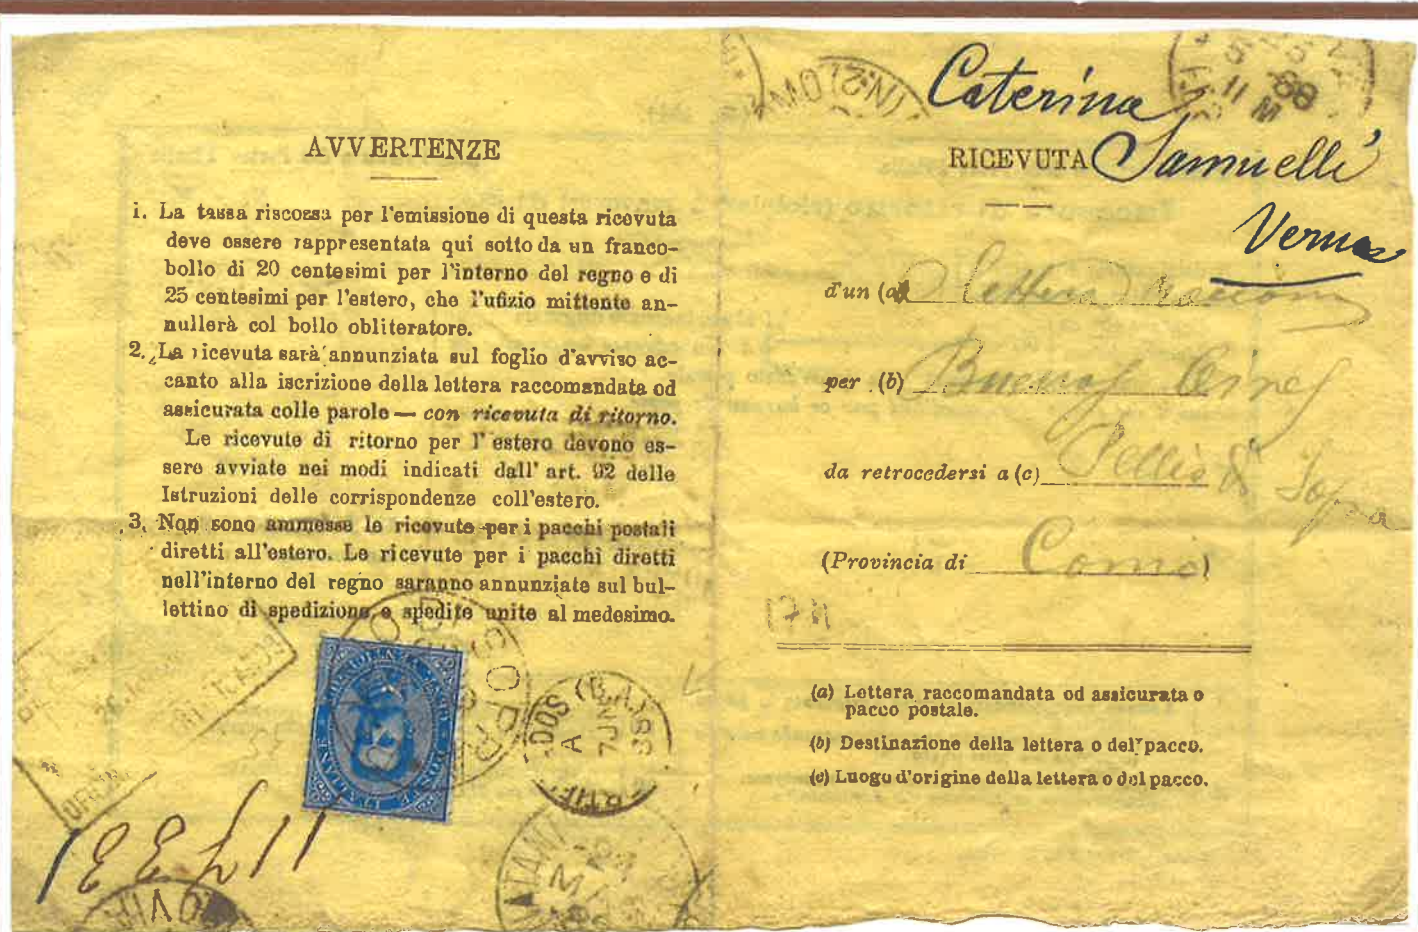 AVVERTENZE
1. La tassa riscossa per l'emissione di questa ricevuta
deve essere rappresentata qui sotto da un franco-
bollo di 20 centesimi per l'interno del regno e di
25 centesimi per l'estero, che l'ufizio mittente an-
nullerà col bollo obliteratore.
2. La ricevuta sarà annunziata sul foglio d'avviso ac-
canto alla iscrizione della lettera raccomandata od
assicurata colle parole — con ricevuta di ritorno.
Le ricevute di ritorno per l'estero devono es-
sere avviate nei modi indicati dall'art. 92 delle
Istruzioni delle corrispondenze coll'estero.
3. Non sono ammesse le ricevute per i pacchi postali
diretti all'estero. Le ricevute per i pacchi diretti
nell'interno del regno saranno annunziate sul bul-
lettino di spedizione e spedite unite al medesimo.
(B.A.)
A
7 JUN
88
Caterina
RICEVUTA Samuelli
d'un (a) Lettera
per (b) Buenos Aires
da retrocedersi a (c)
(Provincia di Como)
(a) Lettera raccomandata od assicurata o
pacco postale.
(b) Destinazione della lettera o del pacco.
(c) Luogo d'origine della lettera o del pacco.
(N.2)
88
11 M